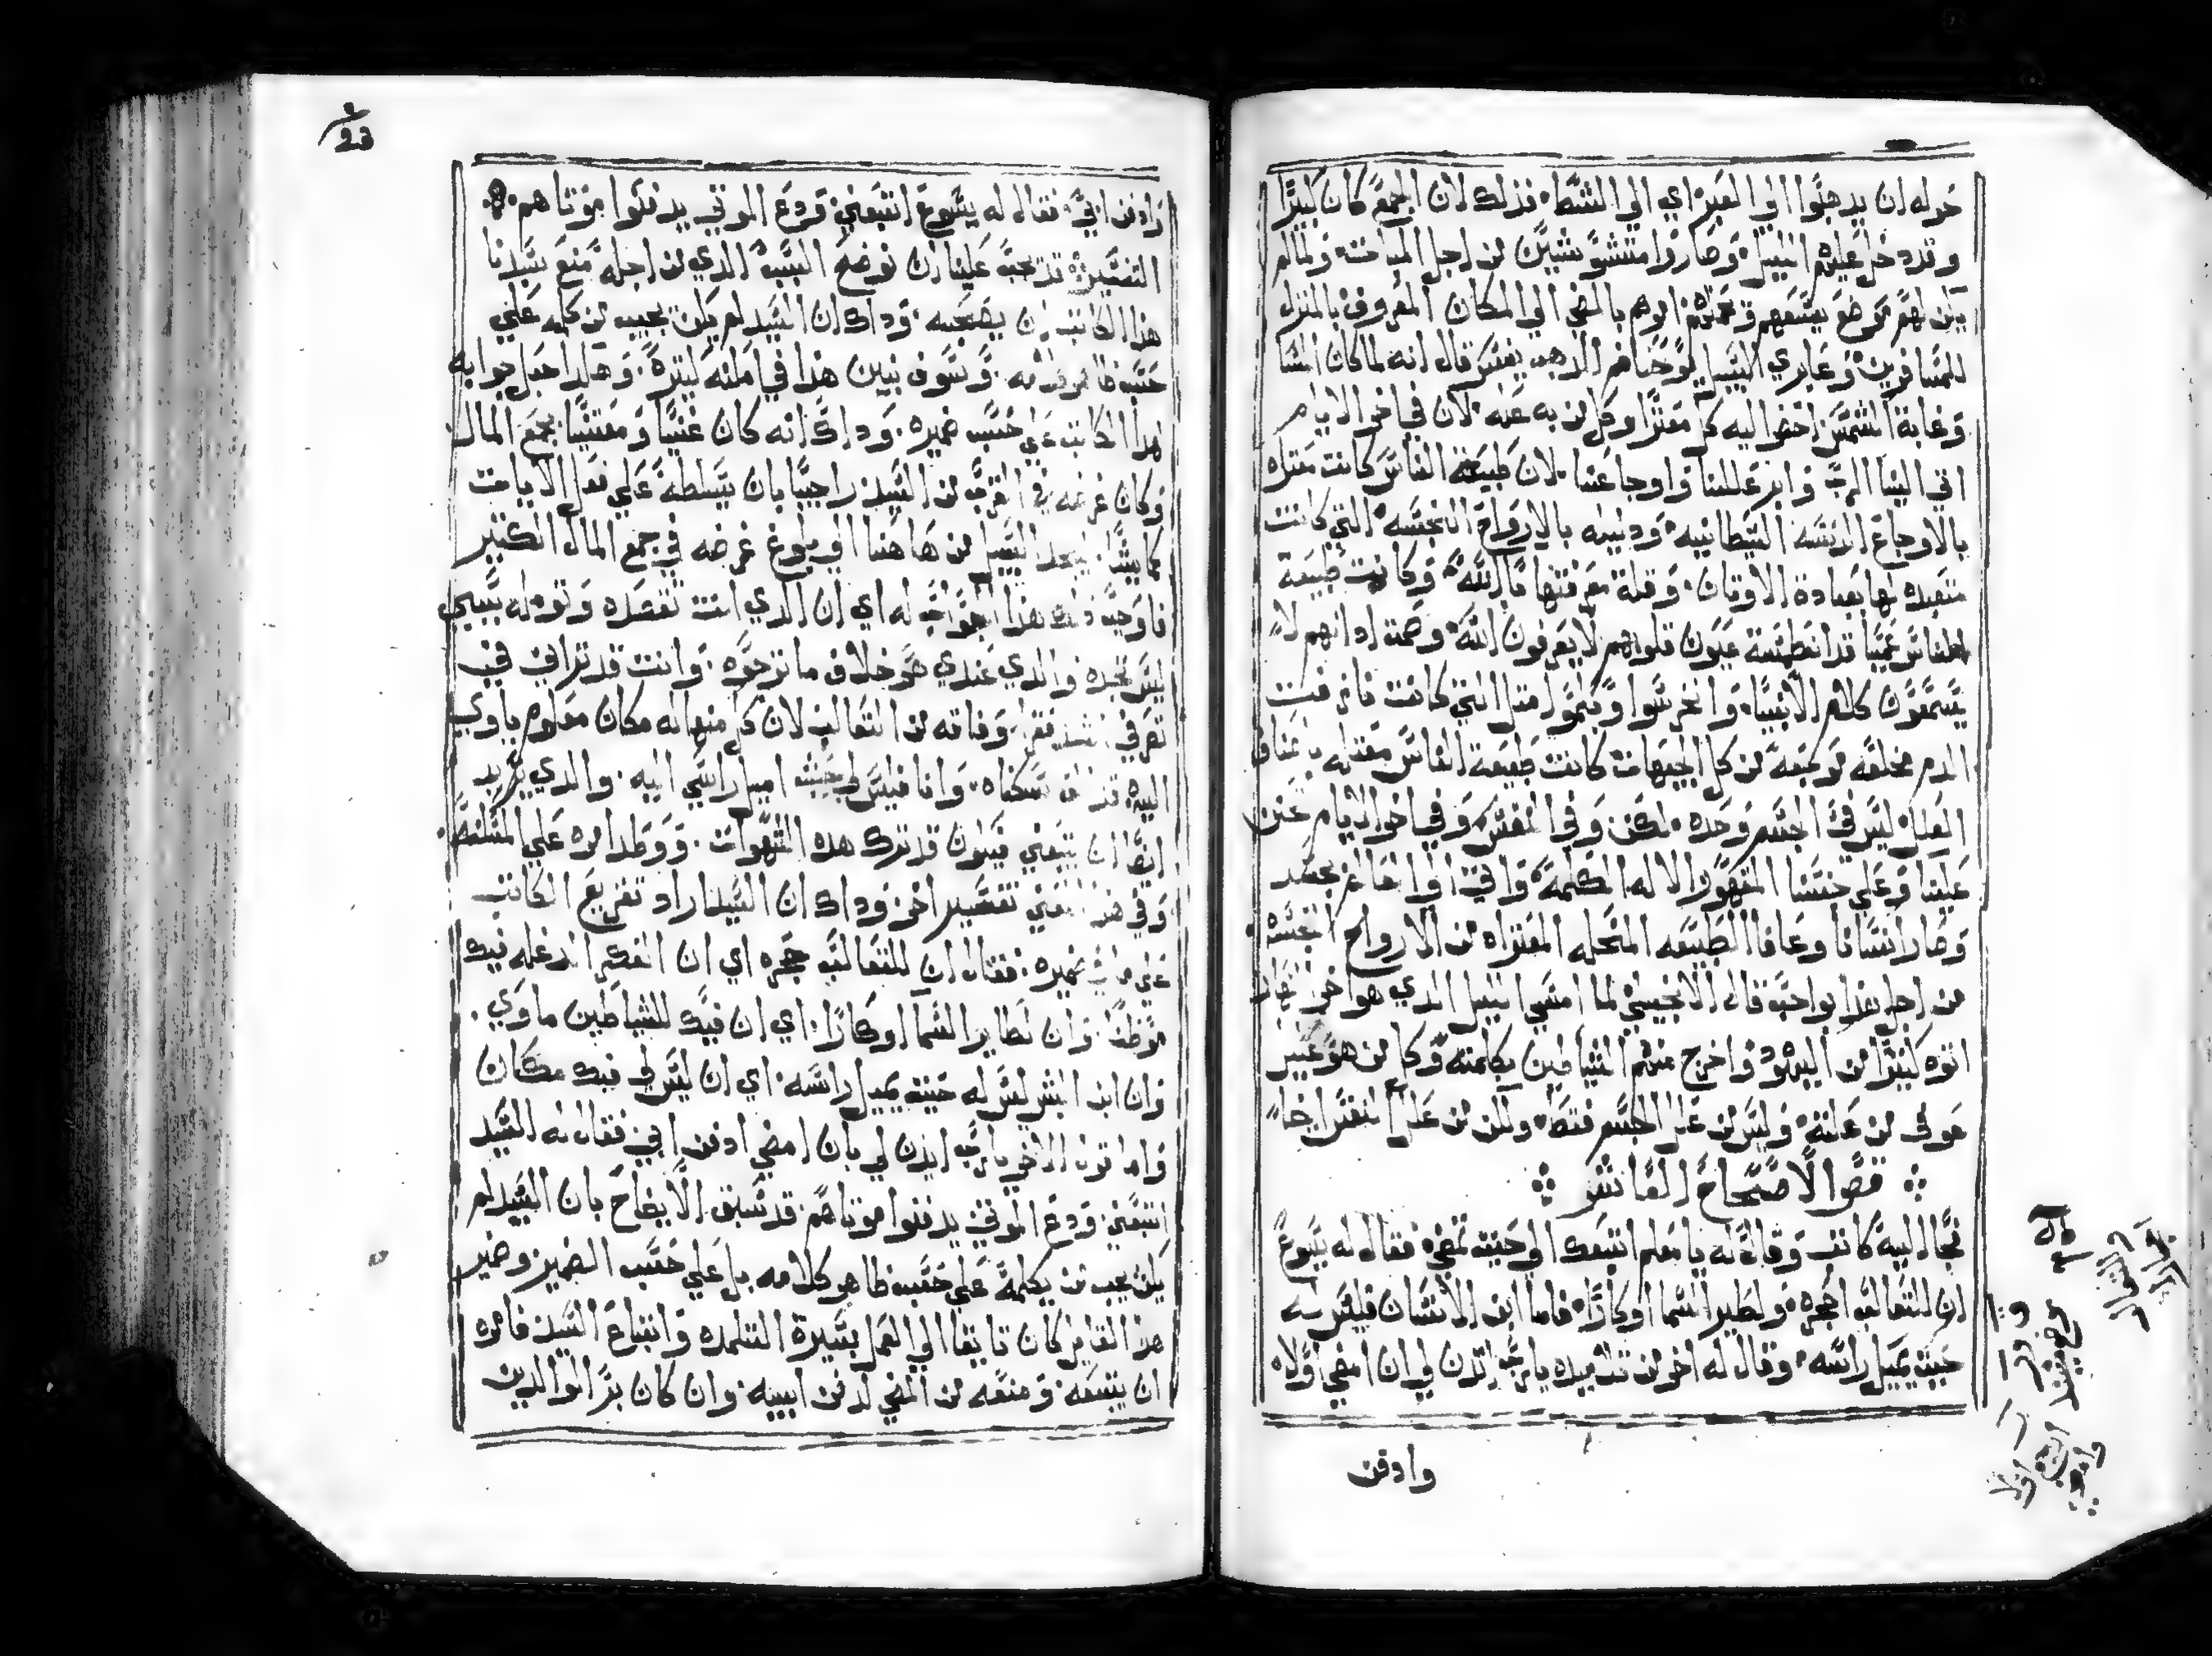 حوله ان يدهبوا الي العبر اي الي الشط، فذلك لان الجمع كان كثيرا
وقد دخل عليهم الليل، وصاروا متشوشين من اجل المباحث، ولما لم
يكن لهم موضع يسعهم امرهم بالمضي الي المكان المعروف بالمنزل
للمسافرين وعابري السبيل يوحنا فم الدهب يفسر قال انه لما كان المسا
وغابة الشمس احضروا اليه كل معترا وكل من به عله، لان في اخر الايام
اتي الينا الرب وابرى عللنا واوجاعنا، لان طبيعة الناس كانت معتله
بالاوجاع الدنسه الشيطانيه، ودليله بالارواح النجسه، التي كانت
متعبده لها بعبادة الاوثان، وقلة معرفتها بالله، وكانت طبيعة
الناس عميا قد انطمست عيون قلوبهم لا يعرفون الله، وصمة ادانهم لا
يسمعون كلام الانبيا، وانخرسوا وبكموا مثل التي كانت نازفت
الدم مختلفه موجعه من كل الجهات كانت طبيعة الناس معتله باصناف
العلل ليس في الجسم وحده، لكن وفي النفس، وفي اخر الايام تحنن
علينا وعلي جنسنا المقهور الاله الكلمة، واتي الي العالم بجسد
وصار انسانا وعافا الطبيعه المنحله المعتراه من الارواح النجسه
من اجل هذا بواجب قال الانجيلي لما امسي الليل الدي هو اخر النهار
اتوه كثيرا من اليهود واخرج منهم الشياطين بكلمته، وكل من هو عبير
عوفي من علته، وليس من علل الجسم فقط، ولكن من علل النفس ايضا،
فص الاصحاح العاشر
فجا اليه كاتب وقال له يا معلم اتبعك الي حيث تمضي، فقال له يسوع
ان للثعالب اجحره، ولطير السما اوكارا، فاما ابن الانسان فليس له
حيث يميل راسه، وقال له اخر من تلاميده يا رب اتدن لي ان امضي اولا
وادفن
وادفن ابي، فقال له يسوع اتبعني ودع الموتي يدفنوا موتاهم
التفسير، قد يجب علينا ان نوضح السبب الدي من اجله منع سيدنا
هدا الكاتب ان يصحبه، وداك ان السيد لم يكن يجيب من كلمه علي
حسب ظاهر كلامه، وسوف نبين هدا في امكنه كثيرة، وهكدا جعل جوابه
لهدا الكاتب علي حسب ضميره، وداك انه كان غنيا ومعتنيا بجمع المال
وكان غرضه في القرب من السيد راجيا بان يسلطه علي فعل الايات
كما يشا، ليجد السبيل من هاهنا الي بلوغ غرضه في جمع المال الكثير
فاوجب دلك هدا الجواب له اي ان الدي انت تقصده وتؤمله بسببي
ليس تجده والدي عندي هو خلاف ما ترجوه، وانت قد تراني في
تصرفي اشد فقرا وفاقه من الثعالب لان كل منها له مكان معلوم ياوي
اليه، قد اتخذ سكناه، وانا فليس لي حيث اميل راسي اليه، والدي يريد
ايضا ان يتبعني فيكون قد ترك هده الشهوات، ووطد امره علي المسكنه
وفي هدا المعني تفسير اخر، وداك ان السيد اراد تقريع الكاتب
علي ما في ضميره، فقال ان للثعالب جحره اي ان الفكر الدغله فيك
موطنا، وان لطاير السما اوكارا، اي ان فيك للشياطين ماوي،
وان ابن البشر ليس له حيث يميل راسه، اي ان ليس لي فيك مكان
واما قول الاخر يا رب ايدن لي بان امضي ادفن ابي فقال له السيد
اتبعني، ودع الموتي يدفنوا موتاهم، قد سبق الايضاح بان السيد لم
يكن يجيب من يكلمه علي حسب ظاهر كلامه بل علي حسب الضمير وضمير
هدا القايل كان تايقا الي العمل بسيرة التلمده واتباع السيد فامره
ان يتبعه، ومنعه من المضي لدفن ابيه، وان كان برا الوالدين